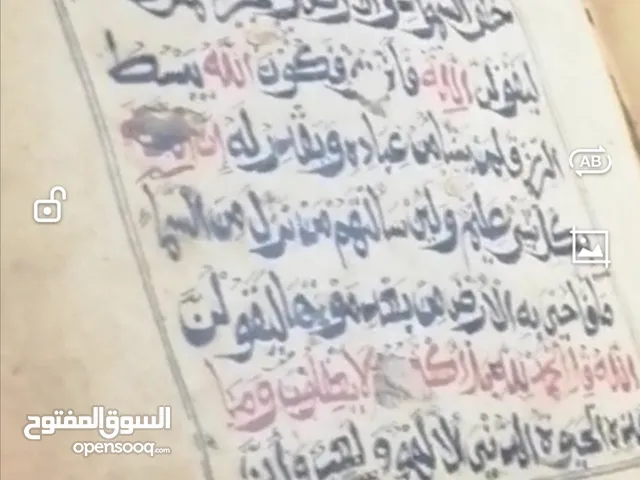 خلق السموات والارض
ليقولن الله فأنى يوفكون الله يبسط
الرزق لمن يشا من عباده ويقدر له ان الله
بكل شي عليم ولين سالتهم من نزل من السما
ما فاحيى به الارض من بعد موتها ليقولن
الله قل الحمد لله بل اكثر لا يعقلون وما
هذه الحيوة الدنيى الا لهو ولعب وان
السوق المفتوح
opensooq.com
AB